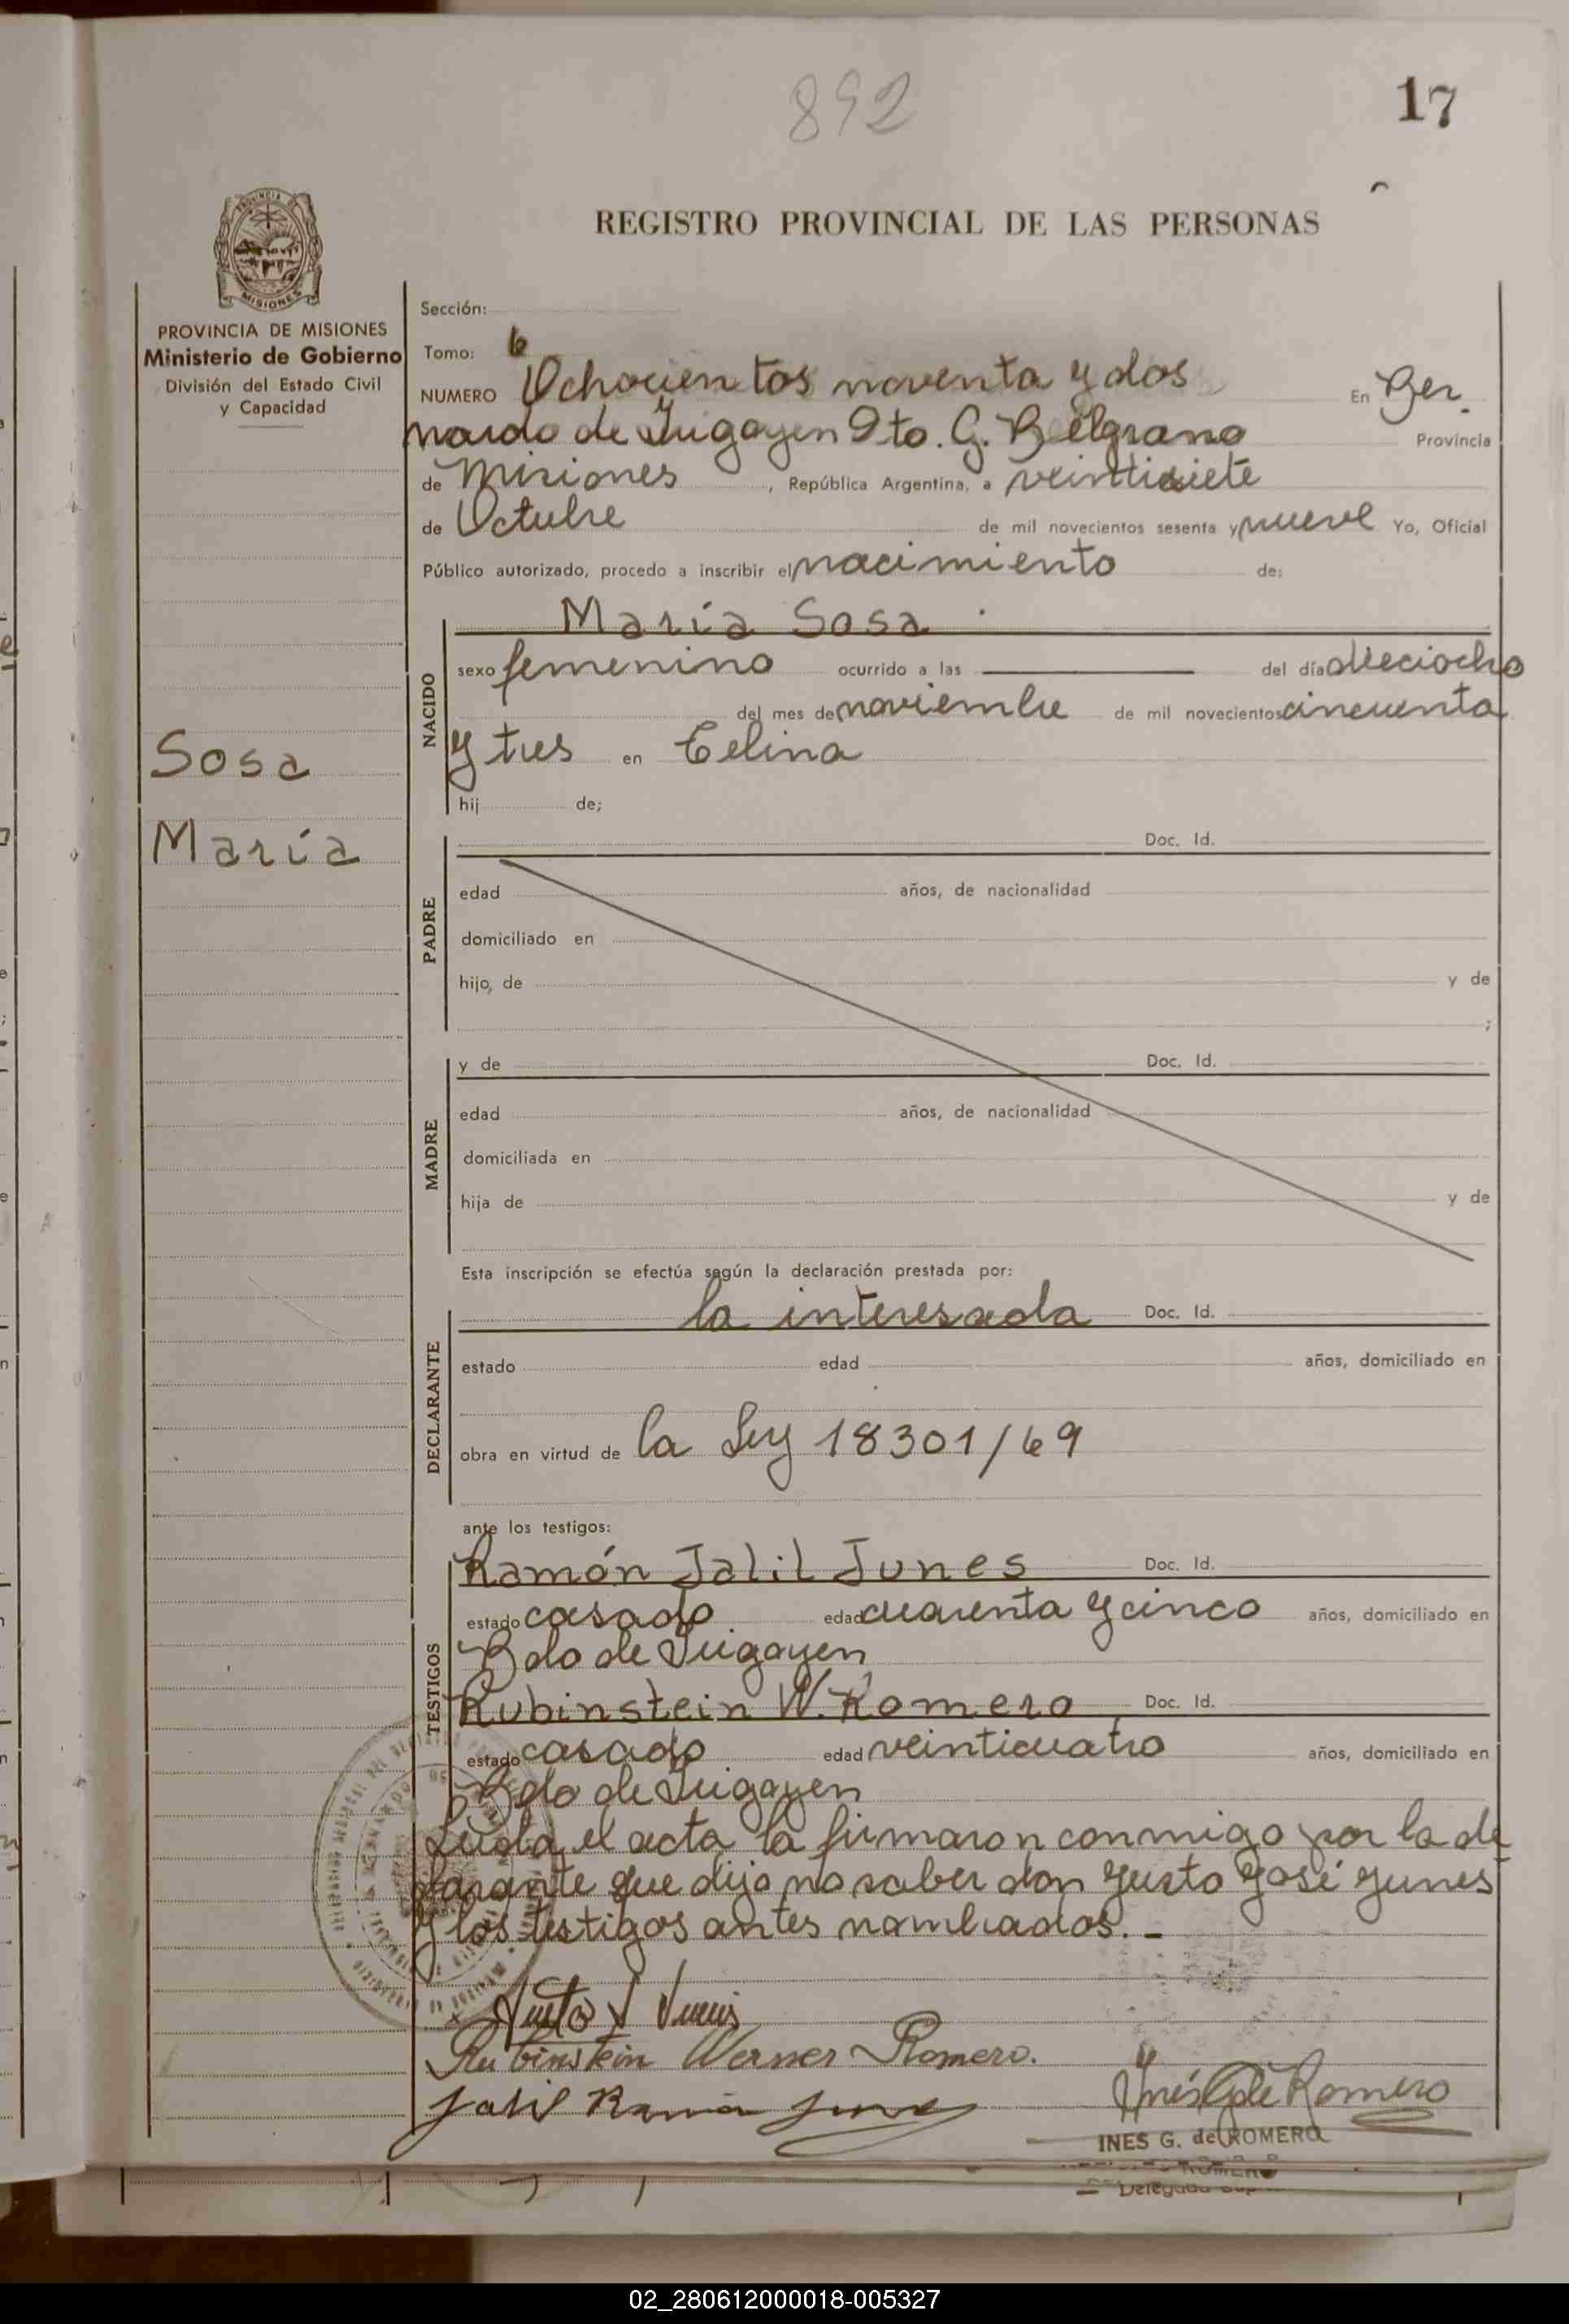 892
17
REGISTRO PROVINCIAL DE LAS PERSONAS
PROVINCIA DE MISIONES
Ministerio de Gobierno
División del Estado Civil
y Capacidad
Sección:
Tomo: 6
NUMERO Ochocientos noventa y dos En Ber
nardo de Irigoyen Dto. G. Belgrano Provincia
de Misiones, República Argentina, a veintisiete
de Octubre de mil novecientos sesenta y nueve Yo, Oficial
Público autorizado, procedo a inscribir el nacimiento de:
María Sosa
NACIDO
sexo femenino ocurrido a las del día dieciocho
del mes de noviembre de mil novecientos cincuenta
y tres en Celina
hij de;
Sosa
María
PADRE
Doc. Id.
edad años, de nacionalidad
domiciliado en
hijo, de y de
;
MADRE
y de Doc. Id.
edad años, de nacionalidad
domiciliada en
hija de y de
Esta inscripción se efectúa según la declaración prestada por:
DECLARANTE
la interesada Doc. Id.
estado edad años, domiciliado en
obra en virtud de la Ley 18301/69
ante los testigos:
TESTIGOS
Ramón Jalil Junes Doc. Id.
estado casado edad cuarenta y cinco años, domiciliado en
Bdo de Irigoyen
Rubinstein W. Romero Doc. Id.
estado casado edad veinticuatro años, domiciliado en
Bdo de Irigoyen
Leída el acta la firmaron conmigo por la de
clarante que dijo no saber don Justo José Junes
y los testigos antes nombrados. -
Rubinstein Werner Romero.
Jalil Ramón Junes
Inés G de Romero
INES G. de ROMERO
02_280612000018-005327